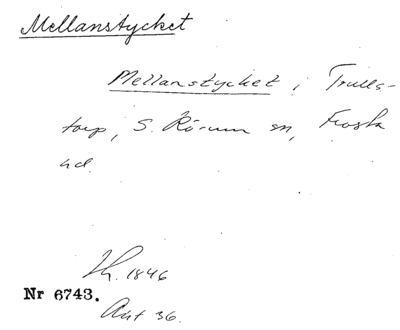 Mellanstycket
Mellanstycket i Trulls-
torp, S. Rörum sn, Frosta
hd.
Lh. 1846
Nr 6743.
Akt 36.